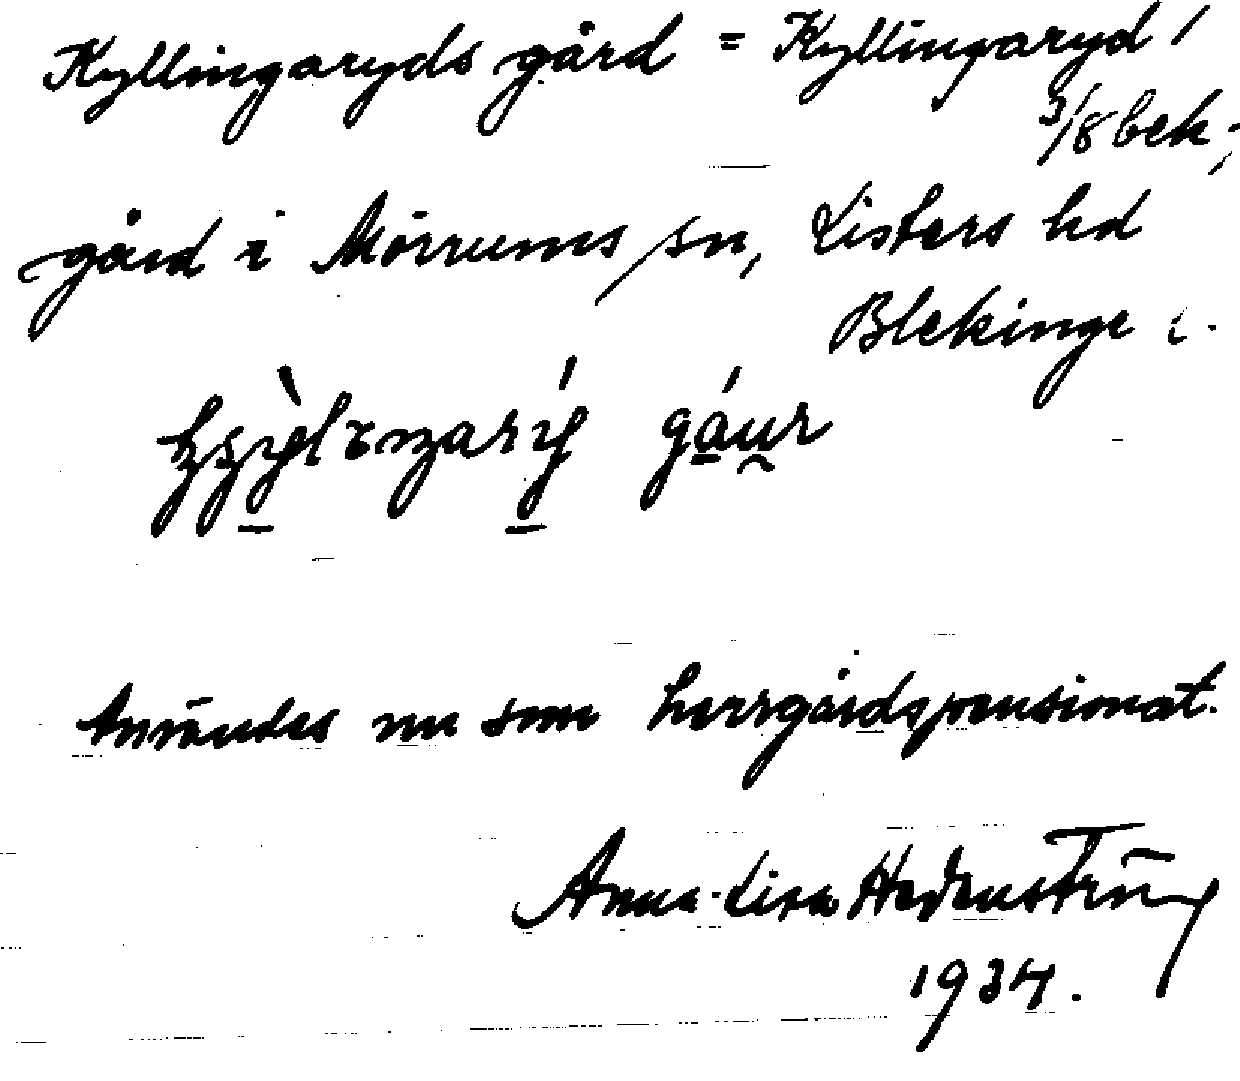 Kyllingaryds gård = Kyllingaryd /
3/8 bek.;
gård i Mörrums sn, Listers hd
Blekinge l.
Användes nu som herrgårdspensionat.
Anna-Lisa Hedenström
1934.